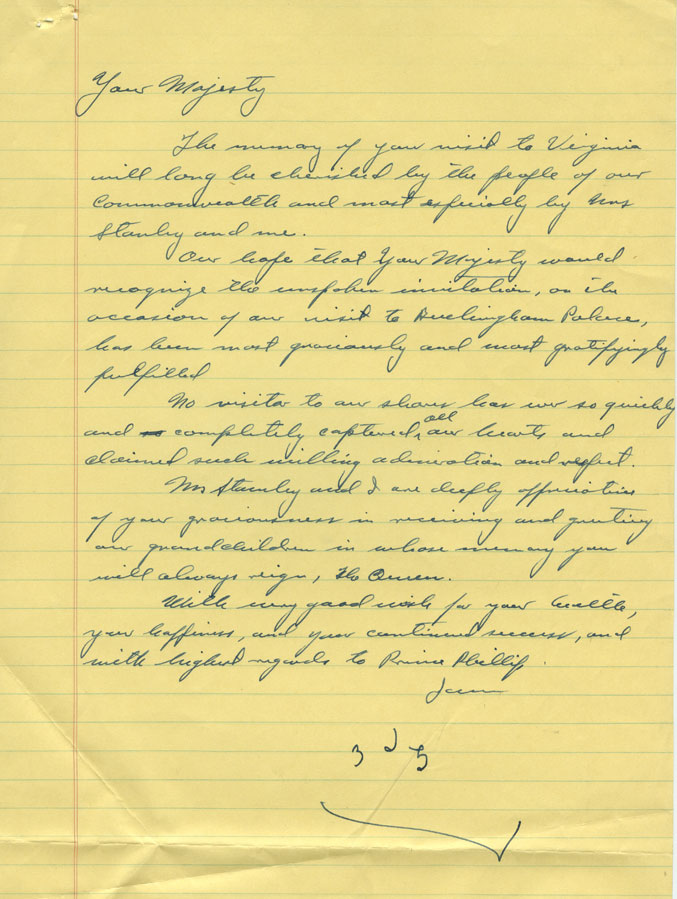 Your Majesty
The memory of your visit to Virginia
will long be cherished by the people of our
Commonwealth and most especially by Mrs
Stanley and me.
Our hope that Your Majesty would
recognize the unspoken invitation, on the
occasion of our visit to Buckingham Palace,
has been most graciously and most gratifyingly
fulfilled
No visitor to our shores has ever so quickly
and completely captured all our hearts and
claimed such willing admiration and respect.
Mrs Stanley and I are deeply appreciative
of your graciousness in receiving and greeting
our grandchildren in whose memory you
will always reign, The Queen.
With every good wish for your health,
your happiness, and your continued success, and
with highest regards to Prince Phillip.
3 5